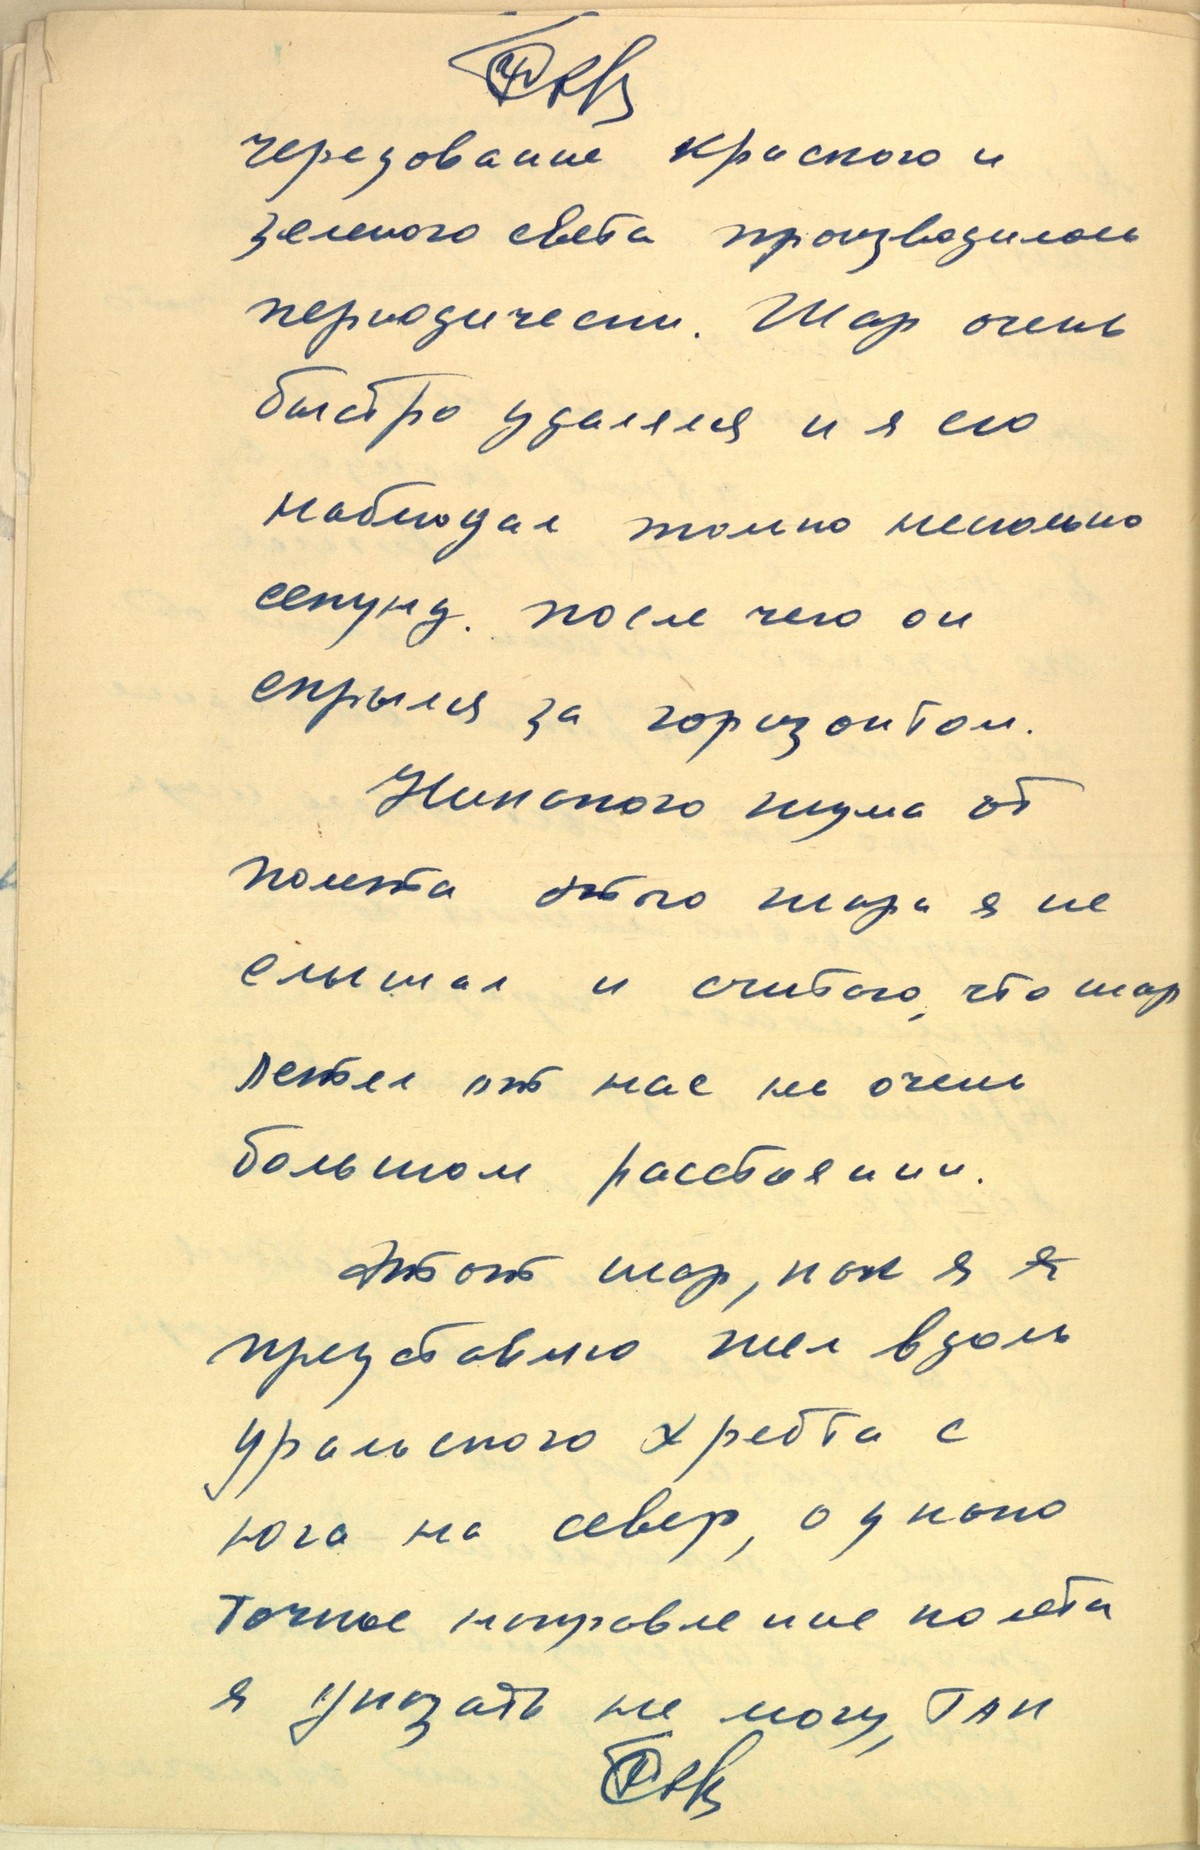 чередование красного и
зеленого света производилось
периодически. Шар очень
быстро удалялся и я его
наблюдал только несколько
секунд. после чего он
скрылся за горизонтом.
Никакого шума от
полета этого шара я не
слышал и считаю, что шар
летел от нас не очень
большом расстоянии.
Этот шар, как я я
представляю шел вдоль
уральского хребта с
юга на север, однако
точное направление полета
я указать не могу, так